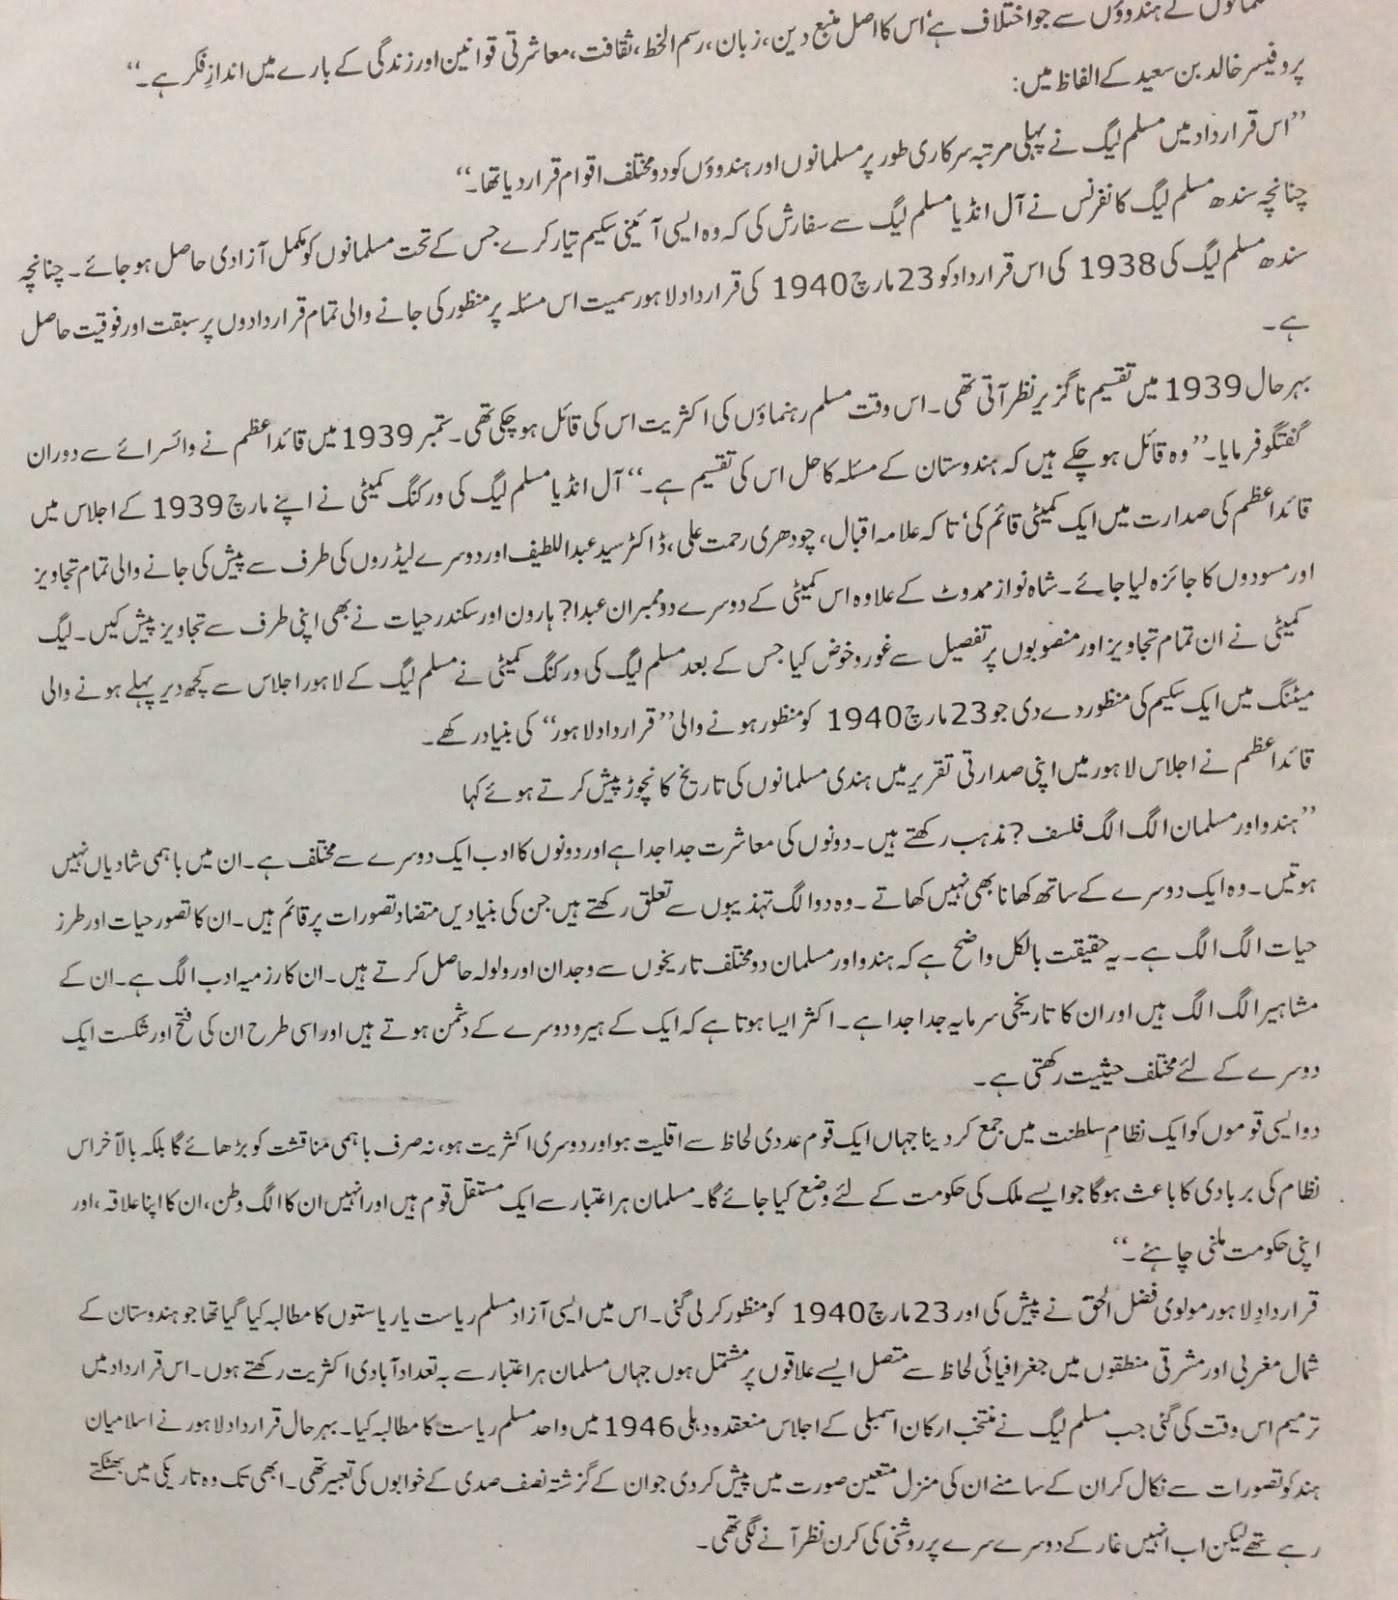 کے ہندوؤں سے جو اختلاف ہے، اس کا اصل منبع دین، زبان، رسم الخط، ثقافت، معاشرتی قوانین اور زندگی کے بارے میں اندازِ فکر ہے۔‘‘
پروفیسر خالد بن سعید کے الفاظ میں:
’’اس قرارداد میں مسلم لیگ نے پہلی مرتبہ سرکاری طور پر مسلمانوں اور ہندوؤں کو دو مختلف اقوام قرار دیا تھا۔‘‘
چنانچہ سندھ مسلم لیگ کانفرنس نے آل انڈیا مسلم لیگ سے سفارش کی کہ وہ ایسی آئینی سکیم تیار کرے جس کے تحت مسلمانوں کو مکمل آزادی حاصل ہو جائے۔ چنانچہ
سندھ مسلم لیگ کی 1938 کی اس قرارداد کو 23 مارچ 1940 کی قرارداد لاہور سمیت اس مسئلہ پر منظور کی جانے والی تمام قراردادوں پر سبقت اور فوقیت حاصل
ہے۔
بہرحال 1939 میں تقسیم ناگزیر نظر آتی تھی۔ اس وقت مسلم رہنماؤں کی اکثریت اس کی قائل ہو چکی تھی۔ ستمبر 1939 میں قائداعظم نے وائسرائے سے دوران
گفتگو فرمایا۔ ’’وہ قائل ہو چکے ہیں کہ ہندوستان کے مسئلہ کا حل اس کی تقسیم ہے۔‘‘ آل انڈیا مسلم لیگ کی ورکنگ کمیٹی نے اپنے مارچ 1939 کے اجلاس میں
قائداعظم کی صدارت میں ایک کمیٹی قائم کی، تاکہ علامہ اقبال، چودھری رحمت علی، ڈاکٹر سید عبداللطیف اور دوسرے لیڈروں کی طرف سے پیش کی جانے والی تمام تجاویز
اور مسودوں کا جائزہ لیا جائے۔ شاہ نواز ممدوٹ کے علاوہ اس کمیٹی کے دوسرے دو ممبران عبدا? ہارون اور سکندر حیات نے بھی اپنی طرف سے تجاویز پیش کیں۔ لیگ
کمیٹی نے ان تمام تجاویز اور منصوبوں پر تفصیل سے غور و خوض کیا جس کے بعد مسلم لیگ کی ورکنگ کمیٹی نے مسلم لیگ کے لاہور اجلاس سے کچھ دیر پہلے ہونے والی
میٹنگ میں ایک سکیم کی منظور دے دی جو 23 مارچ 1940 کو منظور ہونے والی ’’قرارداد لاہور‘‘ کی بنیاد رکھے۔
قائداعظم نے اجلاس لاہور میں اپنی صدارتی تقریر میں ہندی مسلمانوں کی تاریخ کا نچوڑ پیش کرتے ہوئے کہا
’’ہندو اور مسلمان الگ الگ فلسف ? مذہب رکھتے ہیں۔ دونوں کی معاشرت جدا جدا ہے اور دونوں کا ادب ایک دوسرے سے مختلف ہے۔ ان میں باہمی شادیاں نہیں
ہوتیں۔ وہ ایک دوسرے کے ساتھ کھانا بھی نہیں کھاتے۔ وہ دو الگ تہذیبوں سے تعلق رکھتے ہیں جن کی بنیادیں متضاد تصورات پر قائم ہیں۔ ان کا تصور حیات اور طرز
حیات الگ الگ ہے۔ یہ حقیقت بالکل واضح ہے کہ ہندو اور مسلمان دو مختلف تاریخوں سے وجدان اور ولولہ حاصل کرتے ہیں۔ ان کا رزمیہ ادب الگ ہے۔ ان کے
مشاہیر الگ الگ ہیں اور ان کا تاریخی سرمایہ جدا جدا ہے۔ اکثر ایسا ہوتا ہے کہ ایک کے ہیرو دوسرے کے دشمن ہوتے ہیں اور اسی طرح ان کی فتح اور شکست ایک
دوسرے کے لئے مختلف حیثیت رکھتی ہے۔
دو ایسی قوموں کو ایک نظامِ سلطنت میں جمع کر دینا جہاں ایک قوم عددی لحاظ سے اقلیت ہو اور دوسری اکثریت ہو، نہ صرف باہمی مناقشت کو بڑھائے گا بلکہ بالآخر اس
نظام کی بربادی کا باعث ہوگا جو ایسے ملک کی حکومت کے لئے وضع کیا جائے گا۔ مسلمان ہر اعتبار سے ایک مستقل قوم ہیں اور انہیں ان کا الگ وطن، ان کا اپنا علاقہ، اور
اپنی حکومت ملنی چاہئے۔‘‘
قراردادِ لاہور مولوی فضل الحق نے پیش کی اور 23 مارچ 1940 کو منظور کر لی گئی۔ اس میں ایسی آزاد مسلم ریاست یا ریاستوں کا مطالبہ کیا گیا تھا جو ہندوستان کے
شمال مغربی اور مشرقی منطقوں میں جغرافیائی لحاظ سے متصل ایسے علاقوں پر مشتمل ہوں جہاں مسلمان ہر اعتبار سے بہ تعداد آبادی اکثریت رکھتے ہوں۔ اس قرارداد میں
ترمیم اس وقت کی گئی جب مسلم لیگ نے منتخب ارکان اسمبلی کے اجلاس منعقدہ دہلی 1946 میں واحد مسلم ریاست کا مطالبہ کیا۔ بہرحال قرارداد لاہور نے اسلامیان
ہند کو تصورات سے نکال کر ان کے سامنے ان کی منزل متعین صورت میں پیش کر دی جو ان کے گزشتہ نصف صدی کے خوابوں کی تعبیر تھی۔ ابھی تک وہ تاریکی میں بھٹکتے
رہے تھے لیکن اب انہیں غار کے دوسرے سرے پر روشنی کی کرن نظر آنے لگی تھی۔